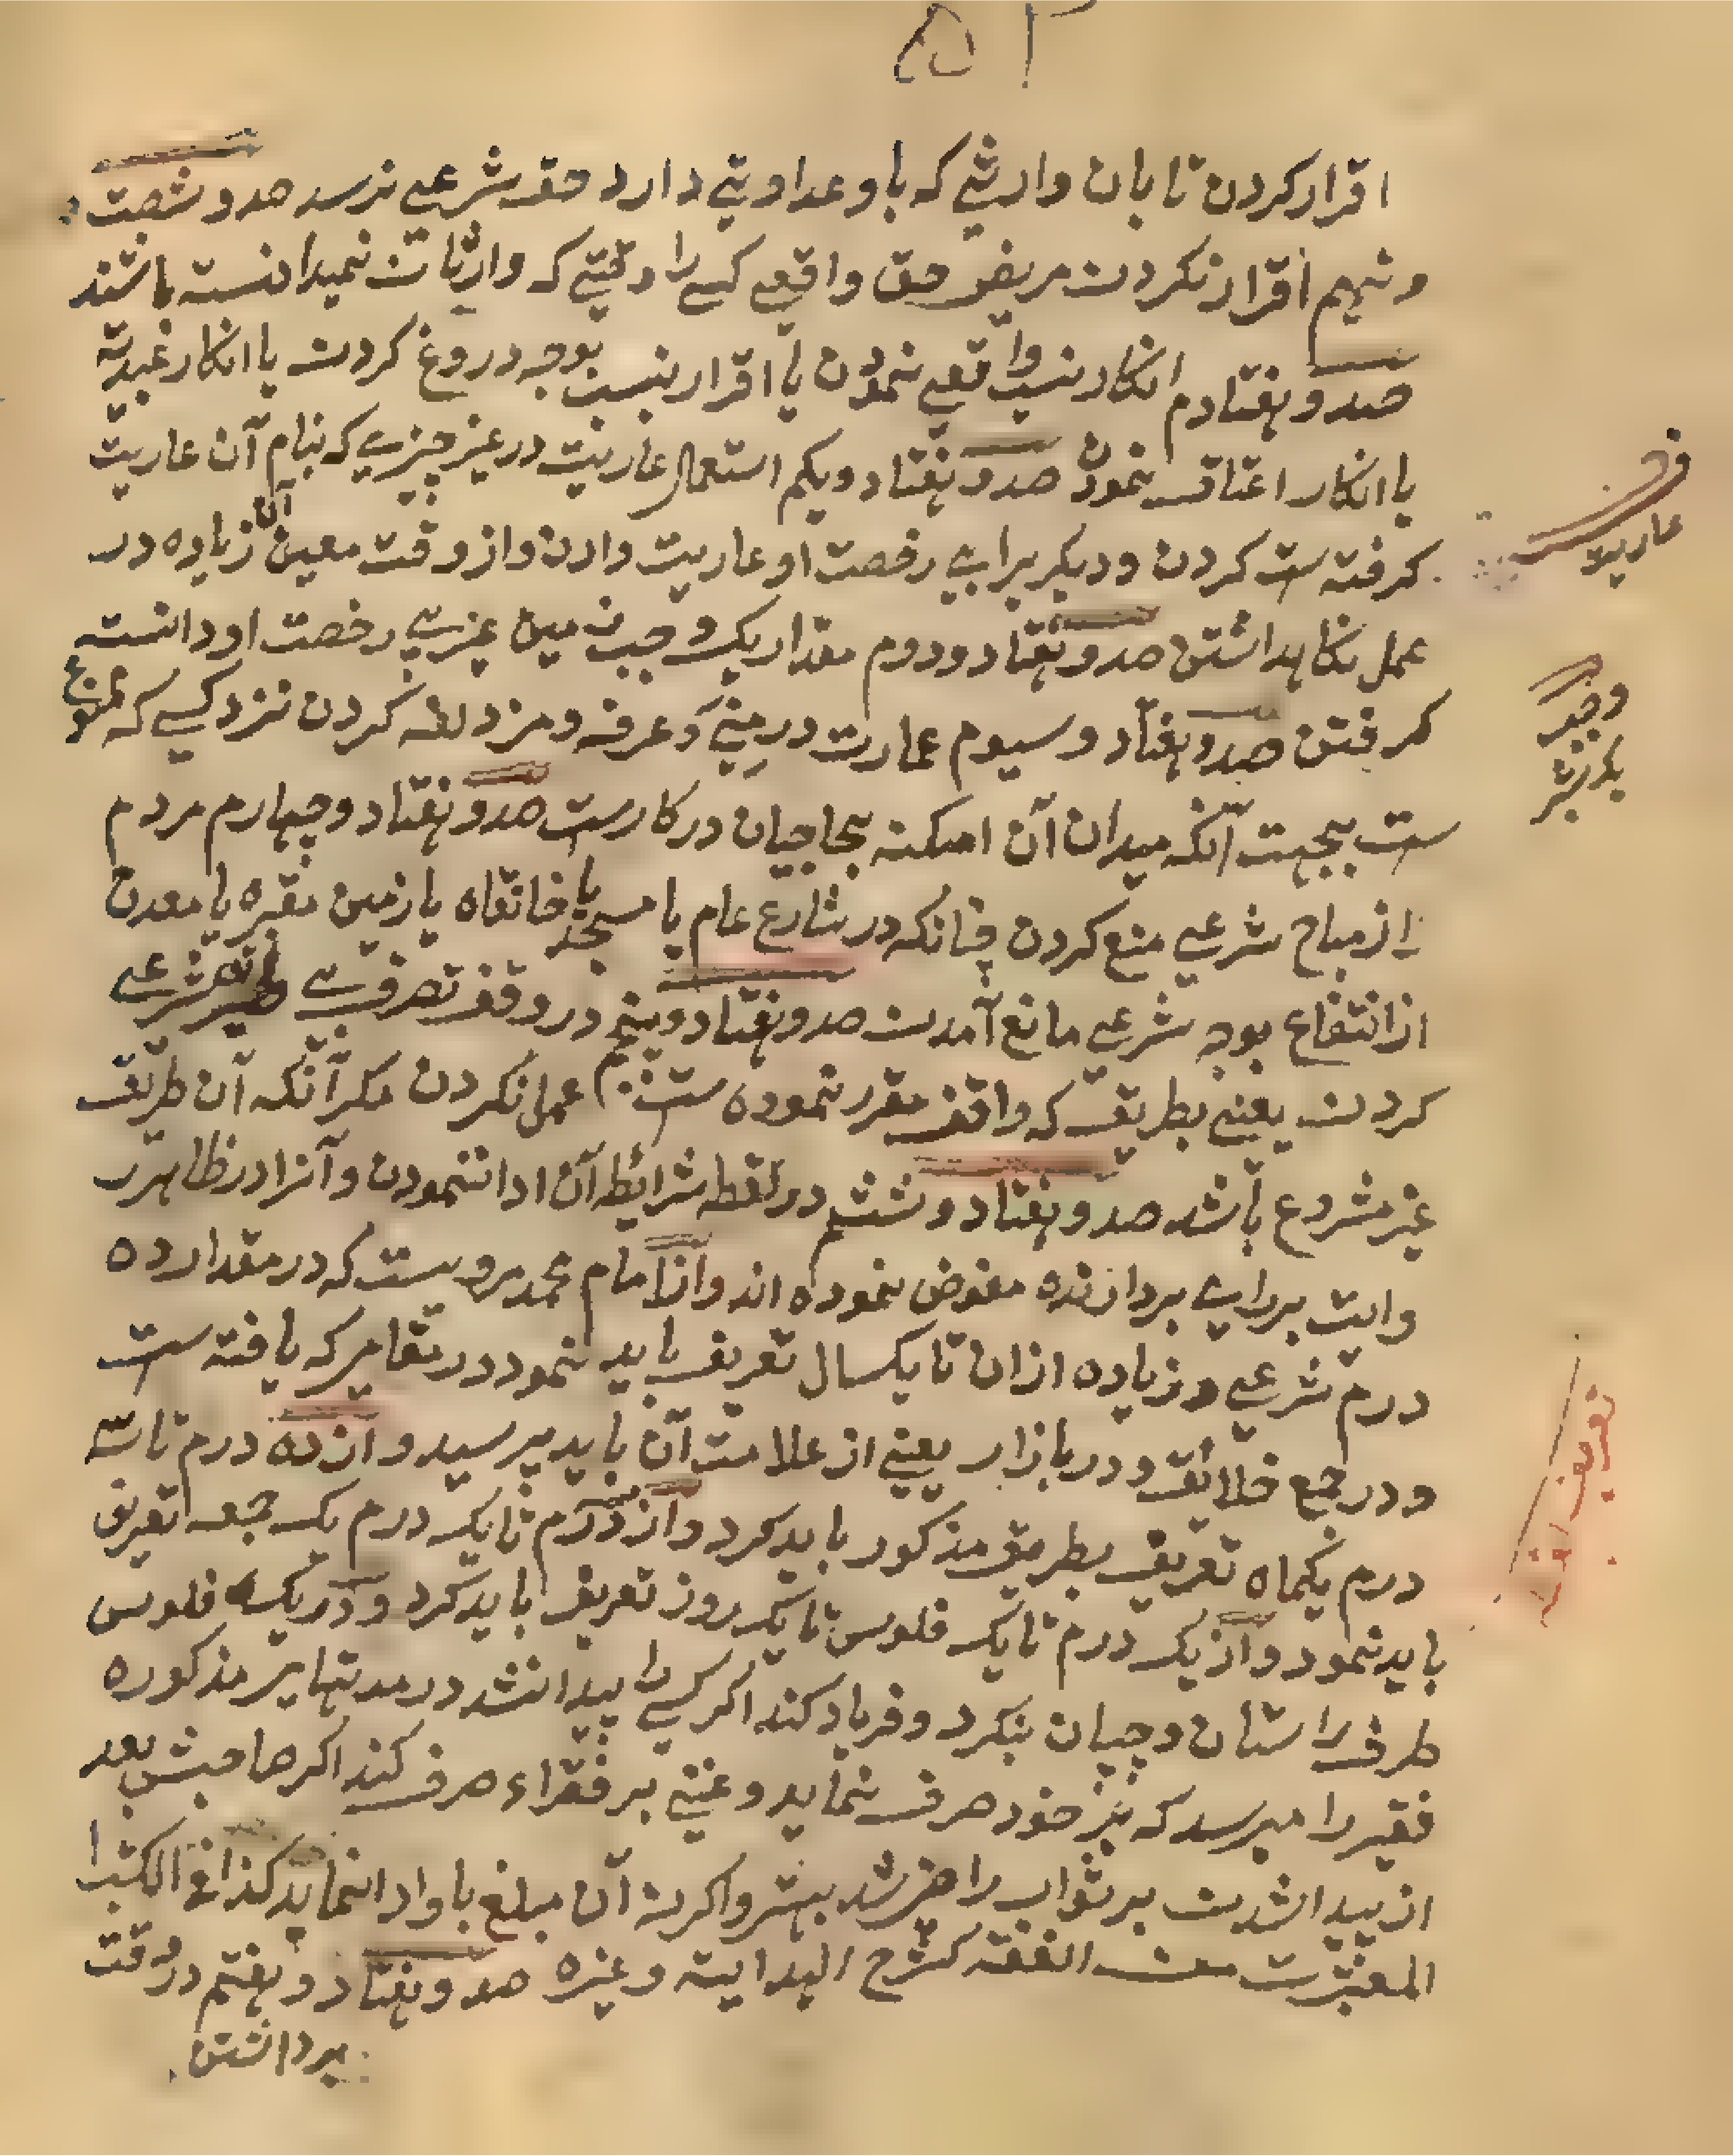 اقرار کردن تا بان وارثے که باو عداوتے دارد حق شرعے نرسد صد و شصت
و نهم اقرار نکردن مریض حق واقعے کسے را وقتے که وارثان نمیدانسته باشند
صد و هفتادم انکار نسب واقعے نمودن یا اقرار نسب بوجه دروغ کردن یا انکار عبدیة
یا انکار اعتاق نمودن صد و هفتاد و یکم استعمال عاریت در غیر چیزے که بنام آن عاریت
کرفته ست کردن و دیکر برابے رخصت او عاریت دادن و از وقت معین آن زیاده در
عمل نکاهداشتن صد و هفتاد و دوم مقدار یک وجب زمین غیرے بے رخصت او دانسته
کرفتن صد و هفتاد و سیوم عمارت در منے و عرفه و مزدلفه کردن نزد کسے که ممنوع
ست بجهت آنکه میدان آن امکنه بحاجیان در کارست صد و هفتاد و چهارم مردم
را از مباح شرعے منع کردن چنانکه در شارع عام یا مسجد یا خانقاه یا زمین مقبره یا معدن
از انتفاع بوجه شرعے مانع آمدن صد و هفتاد و پنجم در وقف تصرفے غیر شرعے
کردن یعنے بطریق که واقف مقرر نموده ست عمل نکردن مکر آنکه آن طریق
غیر مشروع باشد صد و هفتاد و ششم در لقطه شرایط آن ادا ننمودن و آنرا در ظاهر ر
وایت برراے بردارنده مفوض نموده اند و از امام محمد مرویست که در مقدار ده
درم شرعے و زیاده ازان تا یکسال تعریف باید نمود در مقامیکه یافته ست
و در جمع خلائق و در بازار یعنے از علامت آن باید پرسید و از ده درم تا سه
درم یکماه تعریف بطریق مذکور باید کرد و از سه درم تا یک درم یک جمعه تعریف
باید نمود و از یک درم تا یک فلوس تا یک روز تعریف باید کرد و در یک فلوس
طرف راستان و چپان بنکرد و فریاد کند اکر کسے پیدا نشد در مدتهایے مذکوره
فقیر را میرسد که بر خود صرف نماید و غنے بر فقراء صرف کند اکر صاحبش بعد
از پیدا شدن بر ثواب راضے شد بهتر و اکر نه آن مبلغ باو ادا نماید کذا فے الکتب
المعتبرت من الفقه کشرح الهدایة و غیره صد و هفتاد و هفتم در وقت
برداشتن
عاریت
وجب
بدست
تعریف لقطه